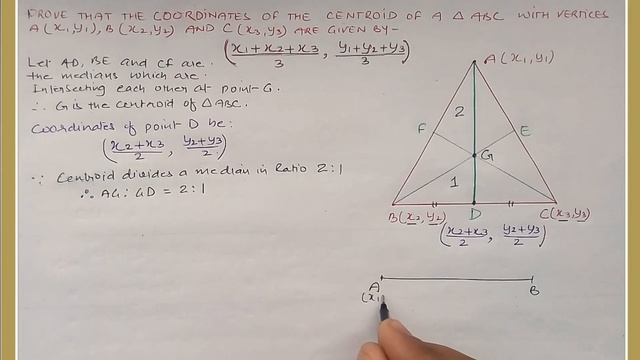 PROVE THAT THE COORDINATES OF THE CENTROID OF A △ ABC WITH VERTICES
A(x₁,y₁), B(x₂,y₂) AND C(x₃,y₃) ARE GIVEN BY-
(x₁+x₂+x₃/3, y₁+y₂+y₃/3)
Let AD, BE and CF are
the medians which are
Intersecting each other at point G.
∴ G is the centroid of △ABC.
Coordinates of point D be:
(x₂+x₃/2, y₂+y₃/2)
∵ Centroid divides a median in Ratio 2:1
∴ AG:GD = 2:1
A(x₁,y₁)
2
F
E
G
1
B(x₂,y₂)
D
C(x₃,y₃)
(x₂+x₃/2, y₂+y₃/2)
A
B
(x₁